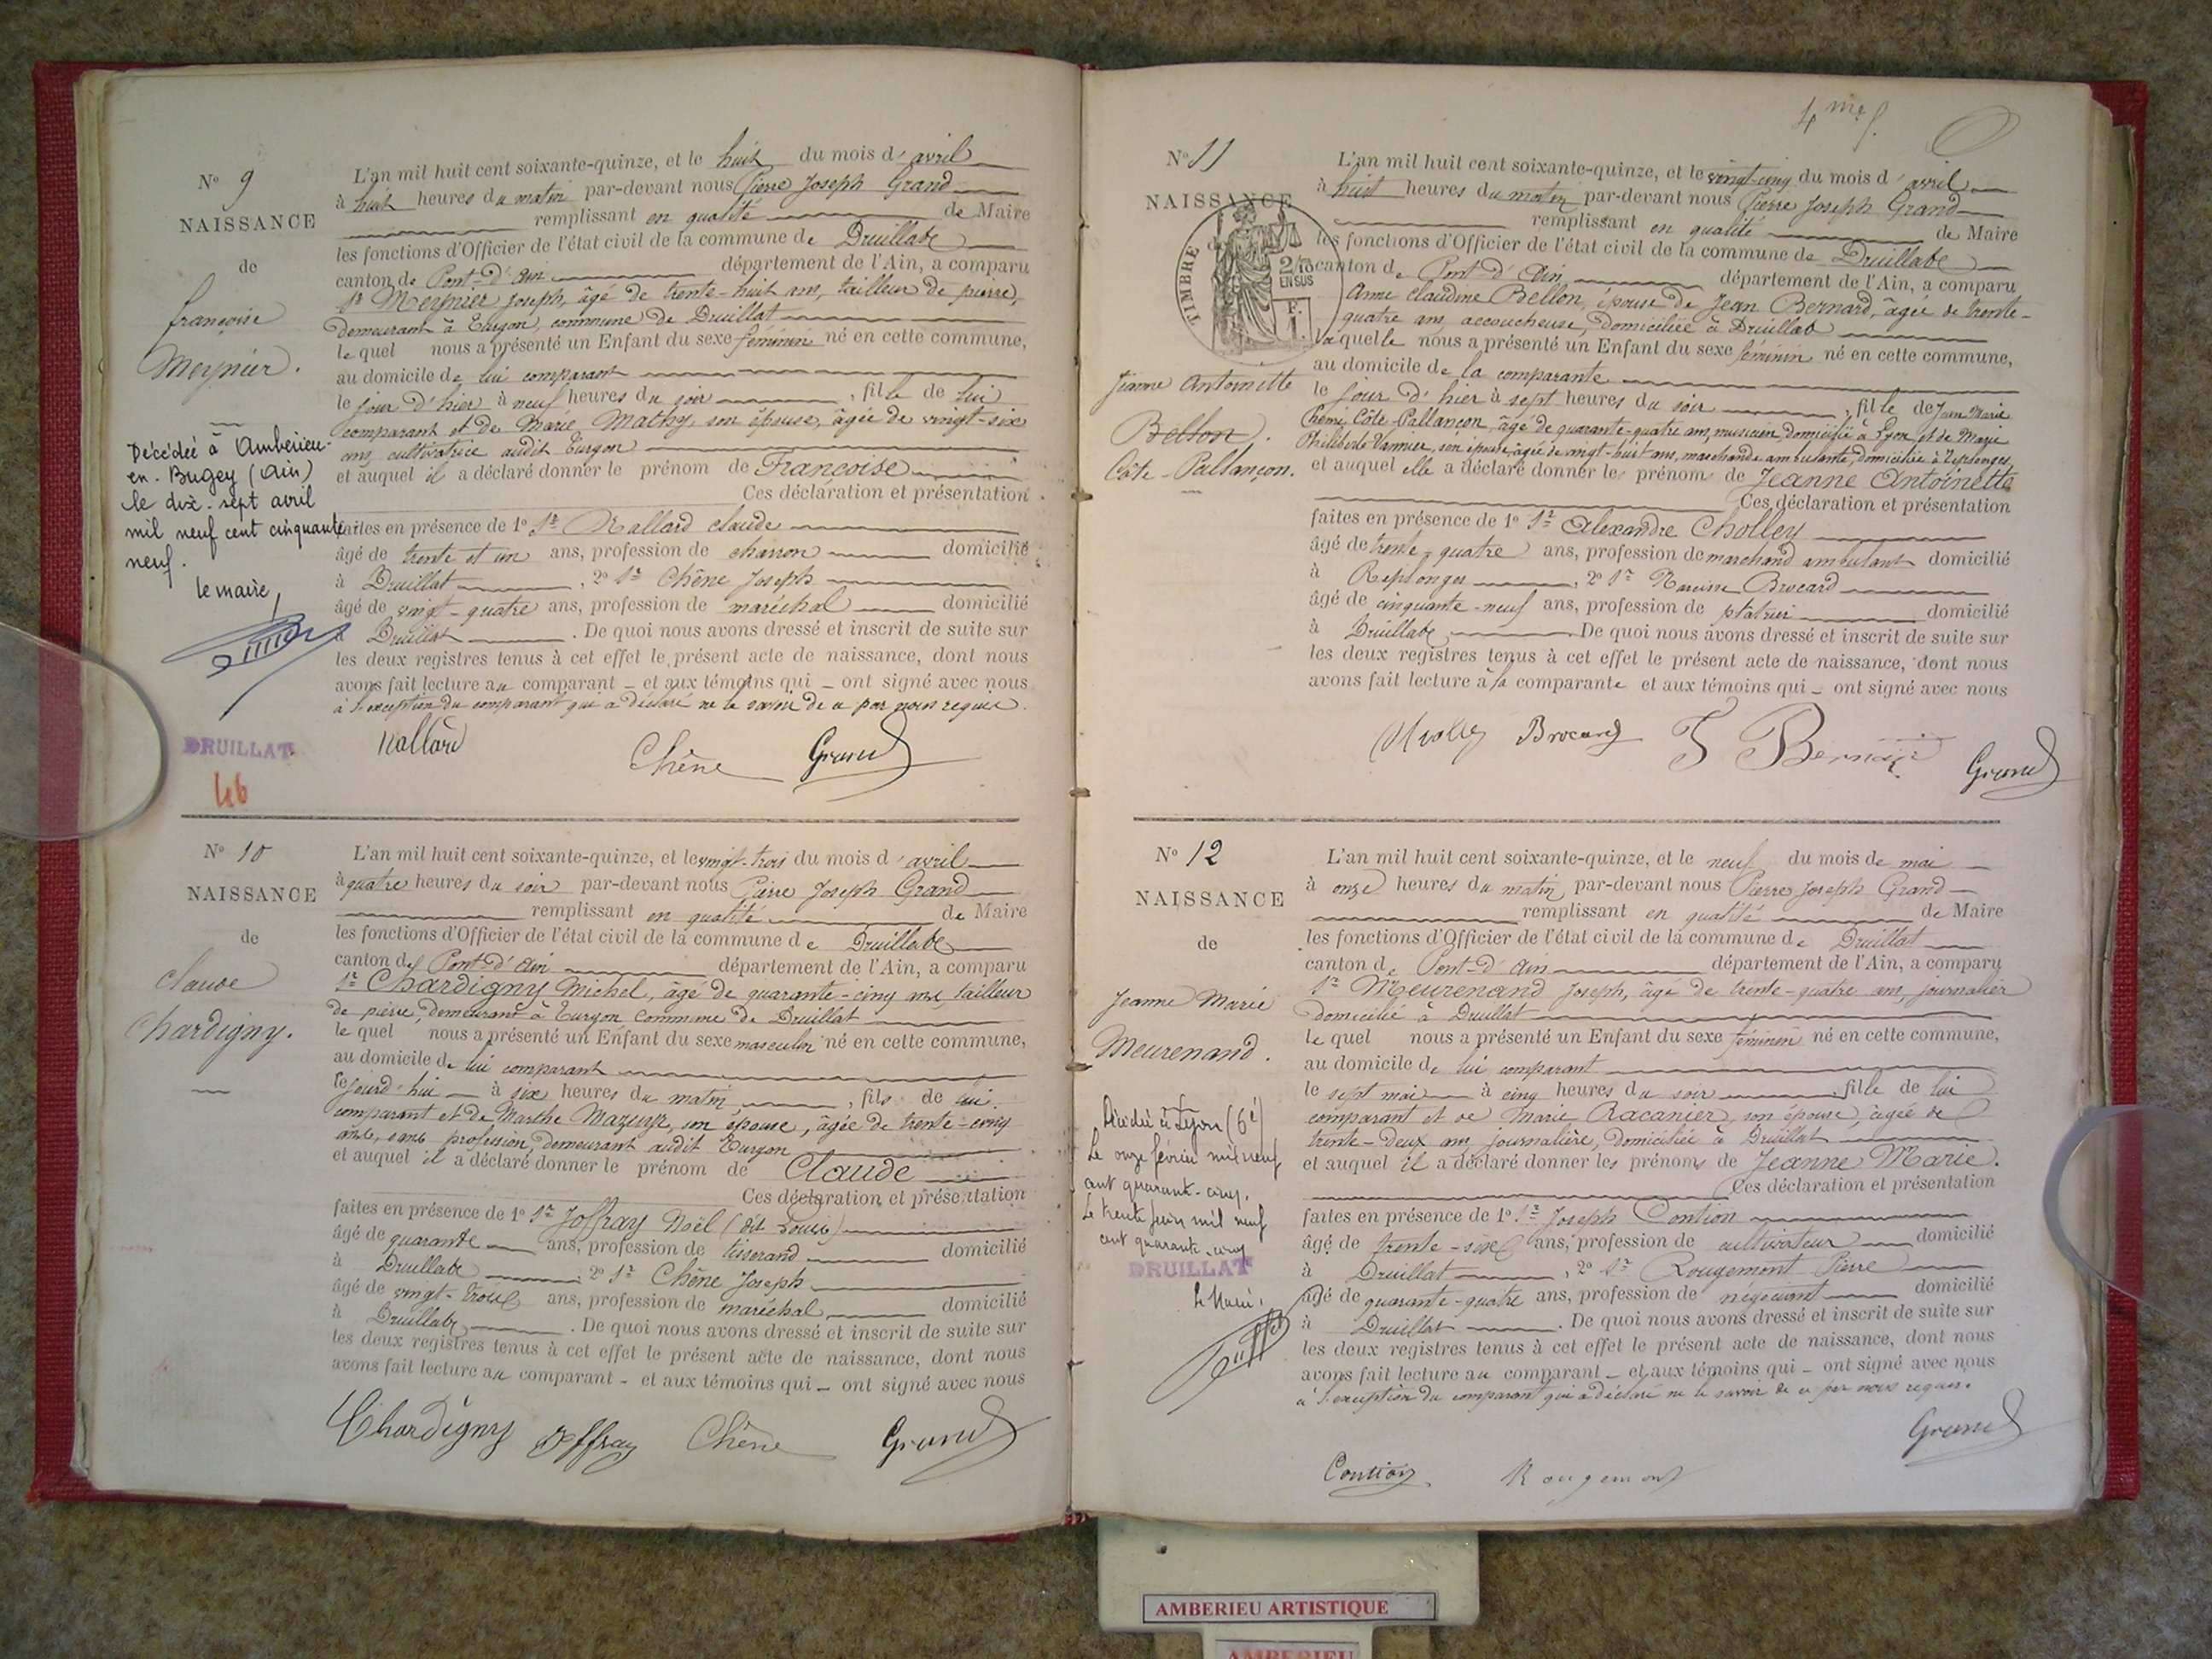 N° 9
NAISSANCE
de
françoise
Meynier.
Décédée à Ambérieu-
en-Bugey (Ain)
le dix-sept avril
mil neuf cent cinquante
neuf.
le maire,
DRUILLAT
46
L'an mil huit cent soixante-quinze, et le huit du mois d'avril
à huit heures du matin par-devant nous Pierre Joseph Grand
remplissant en qualité de Maire
les fonctions d'Officier de l'état civil de la commune de Druillat
canton de Pont-d'Ain département de l'Ain, a comparu
Sr Meynier Joseph, âgé de trente-huit ans, tailleur de pierre,
demeurant à Turgon, commune de Druillat
lequel nous a présenté un Enfant du sexe féminin né en cette commune,
au domicile de lui comparant
le jour d'hier à neuf heures du soir, fille de lui
comparant et de Marie Mathy, son épouse, âgée de vingt-six
ans, cultivatrice audit Turgon
et auquel il a déclaré donner le prénom de Françoise
Ces déclaration et présentation
faites en présence de 1° Sr Nallard claude
âgé de trente et un ans, profession de charron domicilié
à Druillat, 2° Sr Chêne Joseph
âgé de vingt-quatre ans, profession de maréchal domicilié
à Druillat. De quoi nous avons dressé et inscrit de suite sur
les deux registres tenus à cet effet le présent acte de naissance, dont nous
avons fait lecture au comparant - et aux témoins qui - ont signé avec nous
à l'exception du comparant qui a déclaré ne le savoir de ce par nous requis.
Nallard Chêne Grand
N° 10
NAISSANCE
de
claude
Chardigny.
L'an mil huit cent soixante-quinze, et le vingt-trois du mois d'avril
à quatre heures du soir par-devant nous Pierre Joseph Grand
remplissant en qualité de Maire
les fonctions d'Officier de l'état civil de la commune de Druillat
canton de Pont-d'Ain département de l'Ain, a comparu
Sr Chardigny Michel, âgé de quarante-cinq ans, tailleur
de pierre, demeurant à Turgon Commune de Druillat
lequel nous a présenté un Enfant du sexe masculin né en cette commune,
au domicile de lui comparant
le jourd'hui à six heures du matin, fils de lui
comparant et de Marthe Mazuyr, son épouse, âgée de trente-cinq
ans, sans profession, demeurant audit Turgon
et auquel il a déclaré donner le prénom de Claude
Ces déclaration et présentation
faites en présence de 1° Sr Joffray Noël (dit Louis)
âgé de quarante ans, profession de tisserand domicilié
à Druillat, 2° Sr Chêne Joseph
âgé de vingt-trois ans, profession de maréchal domicilié
à Druillat. De quoi nous avons dressé et inscrit de suite sur
les deux registres tenus à cet effet le présent acte de naissance, dont nous
avons fait lecture au comparant - et aux témoins qui - ont signé avec nous
Chardigny Joffray Chêne Grand
4me f.
N° 11
NAISSANCE
de
TIMBRE
2/10
EN SUS
F.
1
Jeanne Antoinette
Bellon.
Côte-Pallançon.
L'an mil huit cent soixante-quinze, et le vingt-cinq du mois d'avril
à huit heures du matin par-devant nous Pierre Joseph Grand
remplissant en qualité de Maire
les fonctions d'Officier de l'état civil de la commune de Druillat
canton de Pont d'Ain département de l'Ain, a comparu
Anne Claudine Bellon, épouse de Jean Bernard, âgée de trente-
quatre ans, accoucheuse, domiciliée à Druillat
laquelle nous a présenté un Enfant du sexe féminin né en cette commune,
au domicile de la comparante
le jour d'hier à sept heures du soir, fille de Jean Marie
Rémi Côte-Pallançon, âgé de quarante-quatre ans, musicien, domicilié à Lyon, et de Marie
Philiberte Vannier, son épouse, âgée de vingt-huit ans, marchande ambulante, domiciliée à Replonges,
et auquel elle a déclaré donner les prénoms de Jeanne Antoinette
Ces déclaration et présentation
faites en présence de 1° Sr Alexandre Cholley
âgé de trente-quatre ans, profession de marchand ambulant domicilié
à Replonges, 2° Sr Narcisse Brocard
âgé de cinquante-neuf ans, profession de plâtrier domicilié
à Druillat. De quoi nous avons dressé et inscrit de suite sur
les deux registres tenus à cet effet le présent acte de naissance, dont nous
avons fait lecture à la comparante et aux témoins qui - ont signé avec nous
Cholley Brocard F Bernard Grand
N° 12
NAISSANCE
de
Jeanne Marie
Meurenand.
Décédée à Lyon (6e)
Le onze février mil neuf
cent quarante-cinq.
Le trente juin mil neuf
cent quarante-cinq
DRUILLAT
Le Maire,
L'an mil huit cent soixante-quinze, et le neuf du mois de mai
à onze heures du matin, par-devant nous Pierre Joseph Grand
remplissant en qualité de Maire
les fonctions d'Officier de l'état civil de la commune de Druillat
canton de Pont-d'Ain département de l'Ain, a comparu
Sr Meurenand Joseph, âgé de trente-quatre ans, journalier
domicilié à Druillat
lequel nous a présenté un Enfant du sexe féminin né en cette commune,
au domicile de lui comparant
le sept mai à cinq heures du soir, fille de lui
comparant et de Marie Racanier, son épouse, âgée de
trente-deux ans, journalière, domiciliée à Druillat
et auquel il a déclaré donner les prénoms de Jeanne Marie.
Ces déclaration et présentation
faites en présence de 1° Sr Joseph Contion
âgé de trente-six ans, profession de cultivateur domicilié
à Druillat, 2° Sr Rougemont Pierre
âgé de quarante-quatre ans, profession de négociant domicilié
à Druillat. De quoi nous avons dressé et inscrit de suite sur
les deux registres tenus à cet effet le présent acte de naissance, dont nous
avons fait lecture au comparant - et aux témoins qui - ont signé avec nous
à l'exception du comparant qui a déclaré ne le savoir de ce par nous requis.
Grand
Contion Rougemont
AMBERIEU ARTISTIQUE
AMBERIEU